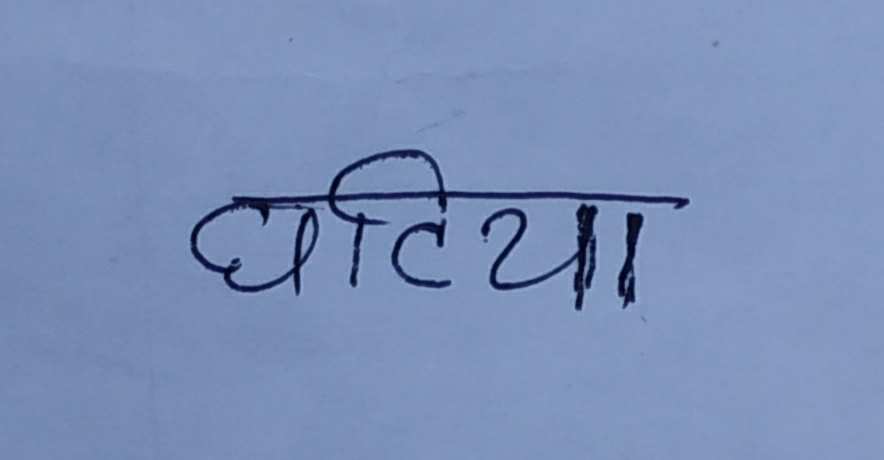 घटिया